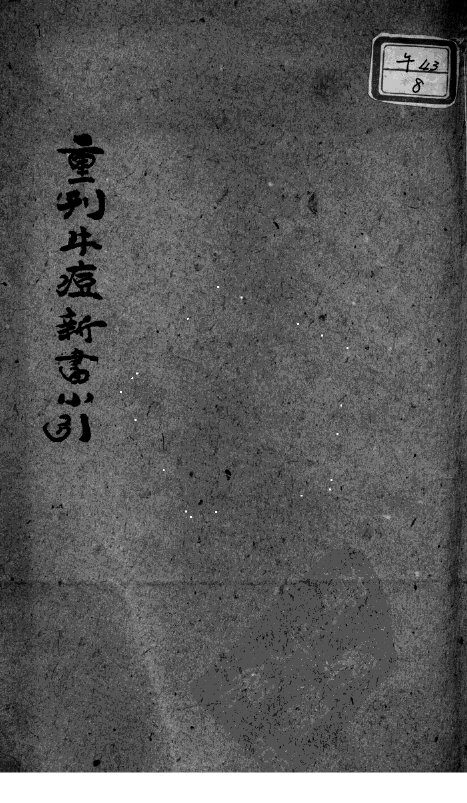 重刊牛痘新書小引
午43
8